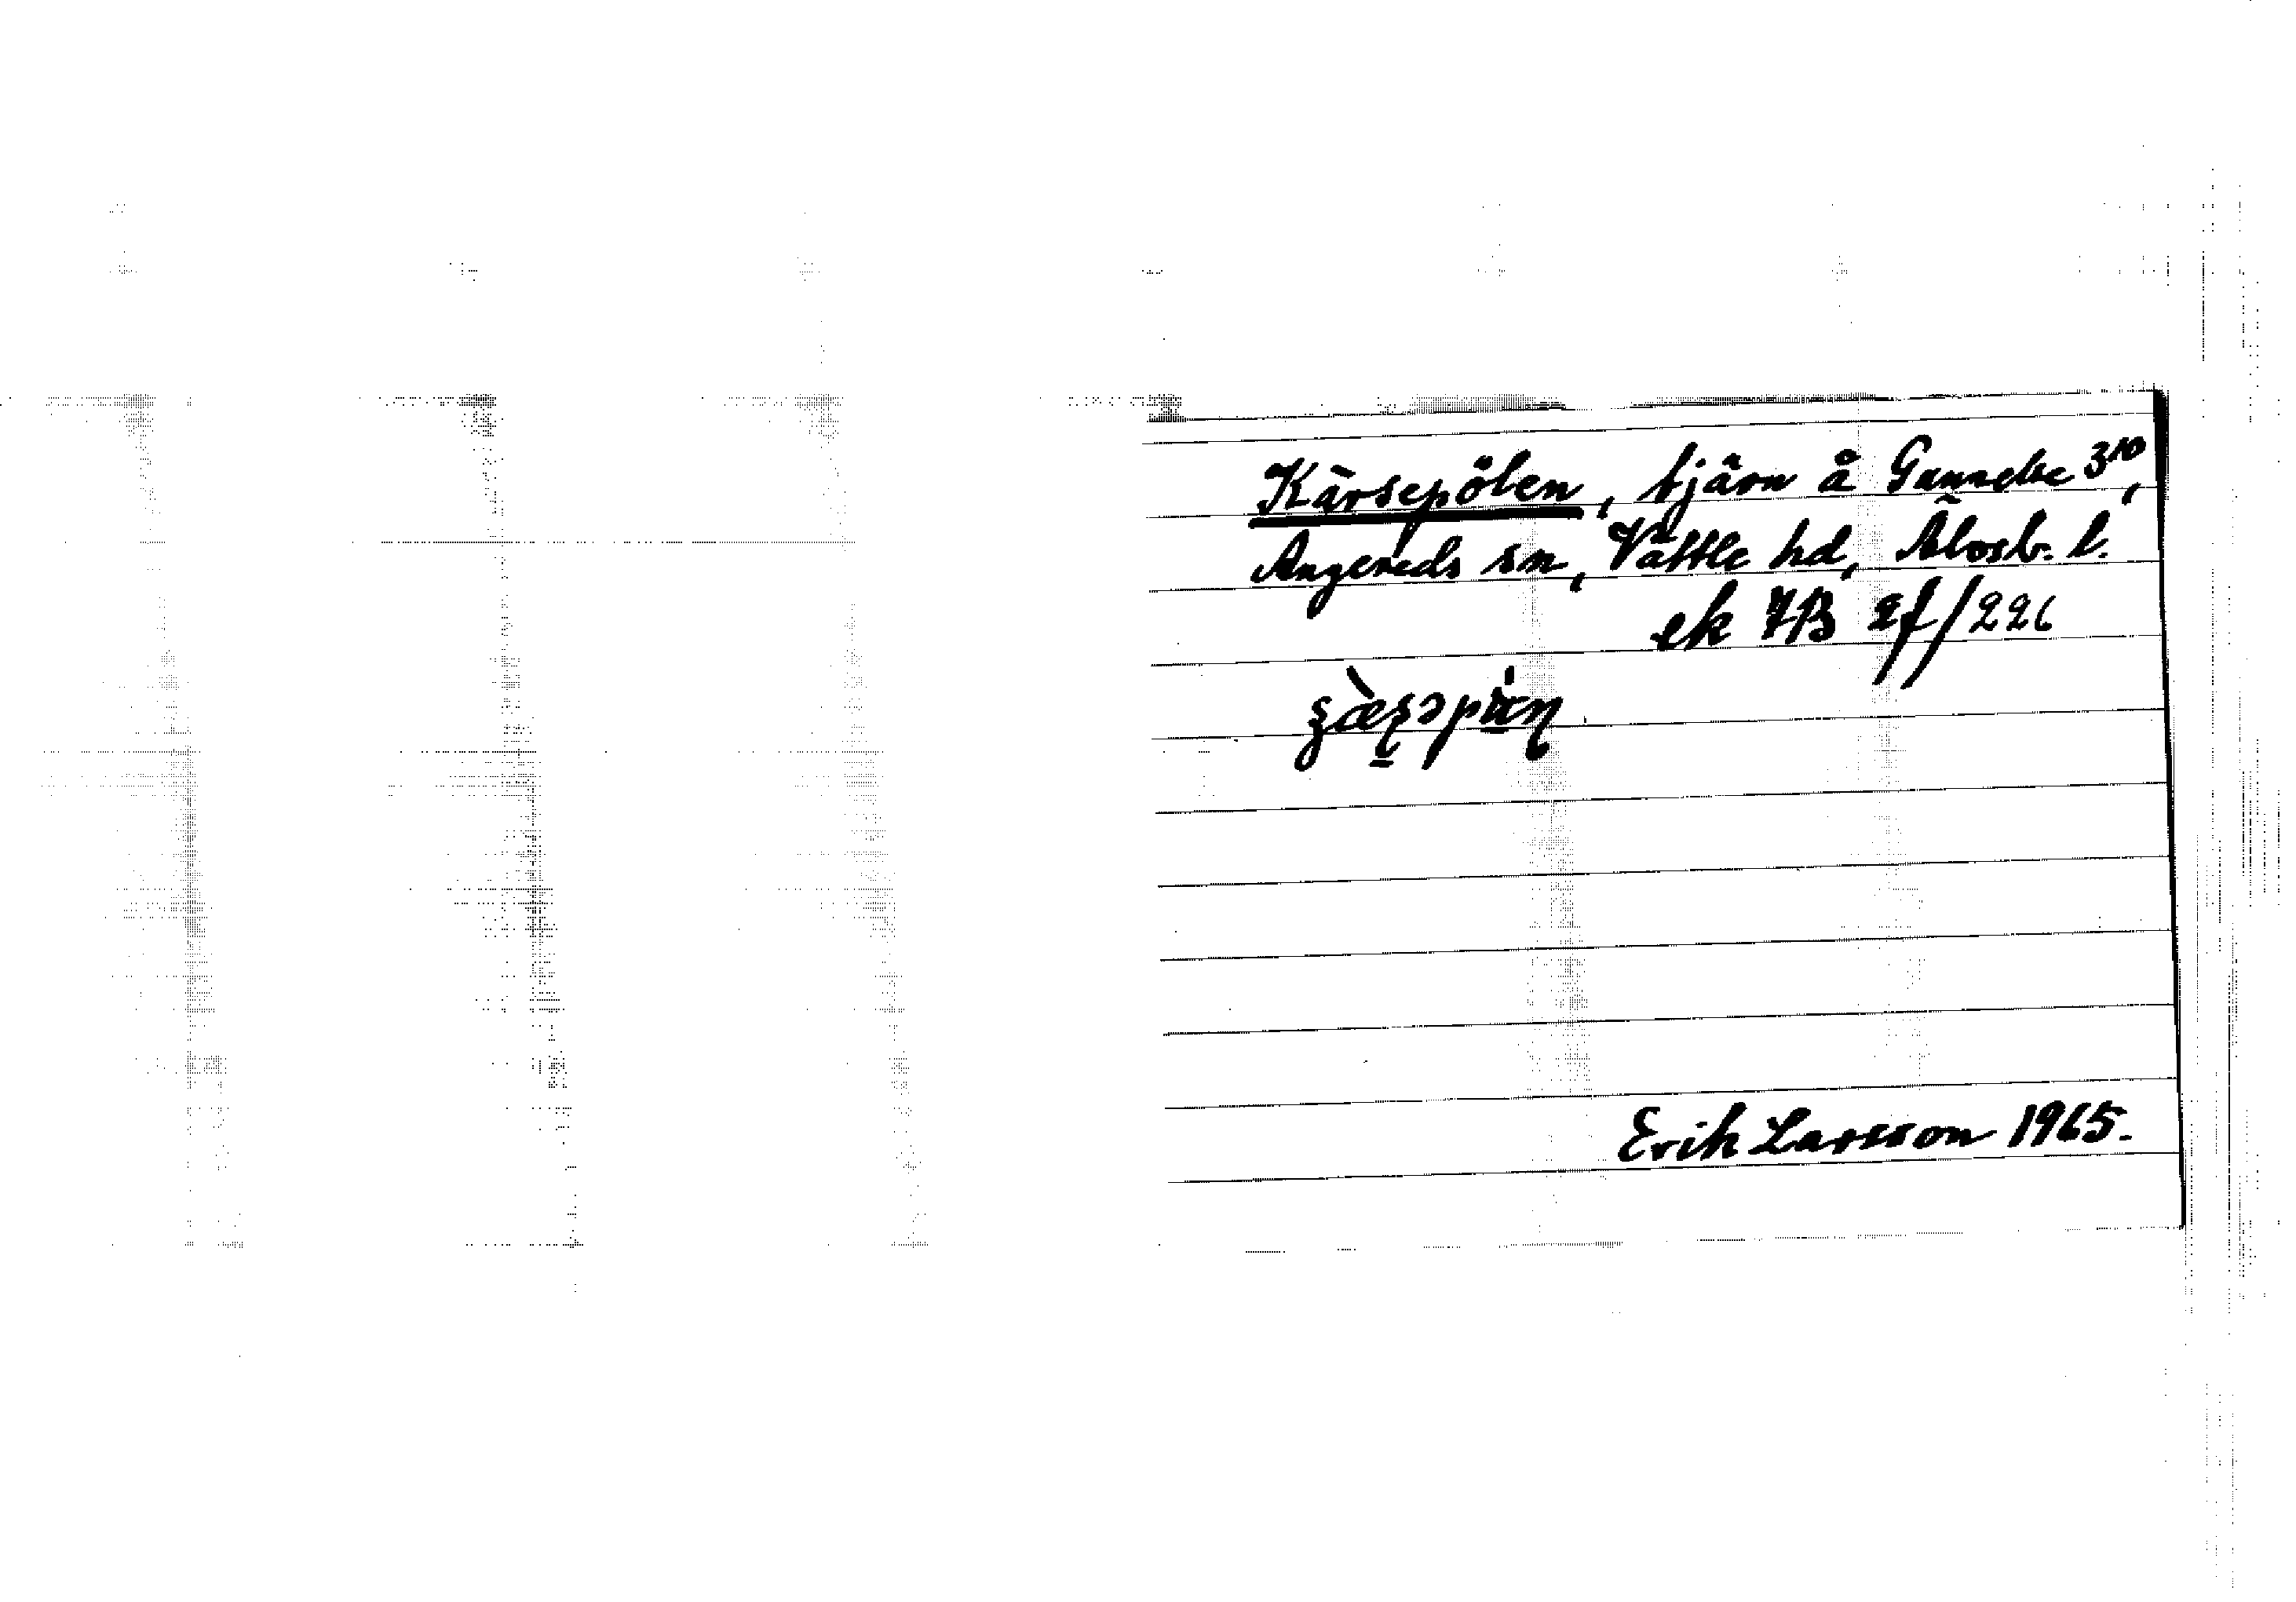 Kärsepölen, tjärn å Gunnelse 3¹⁰,
Angereds sn, Vättle hd, Älvsb. l.
ek 7B 2f/226
Erik Larsson 1965.